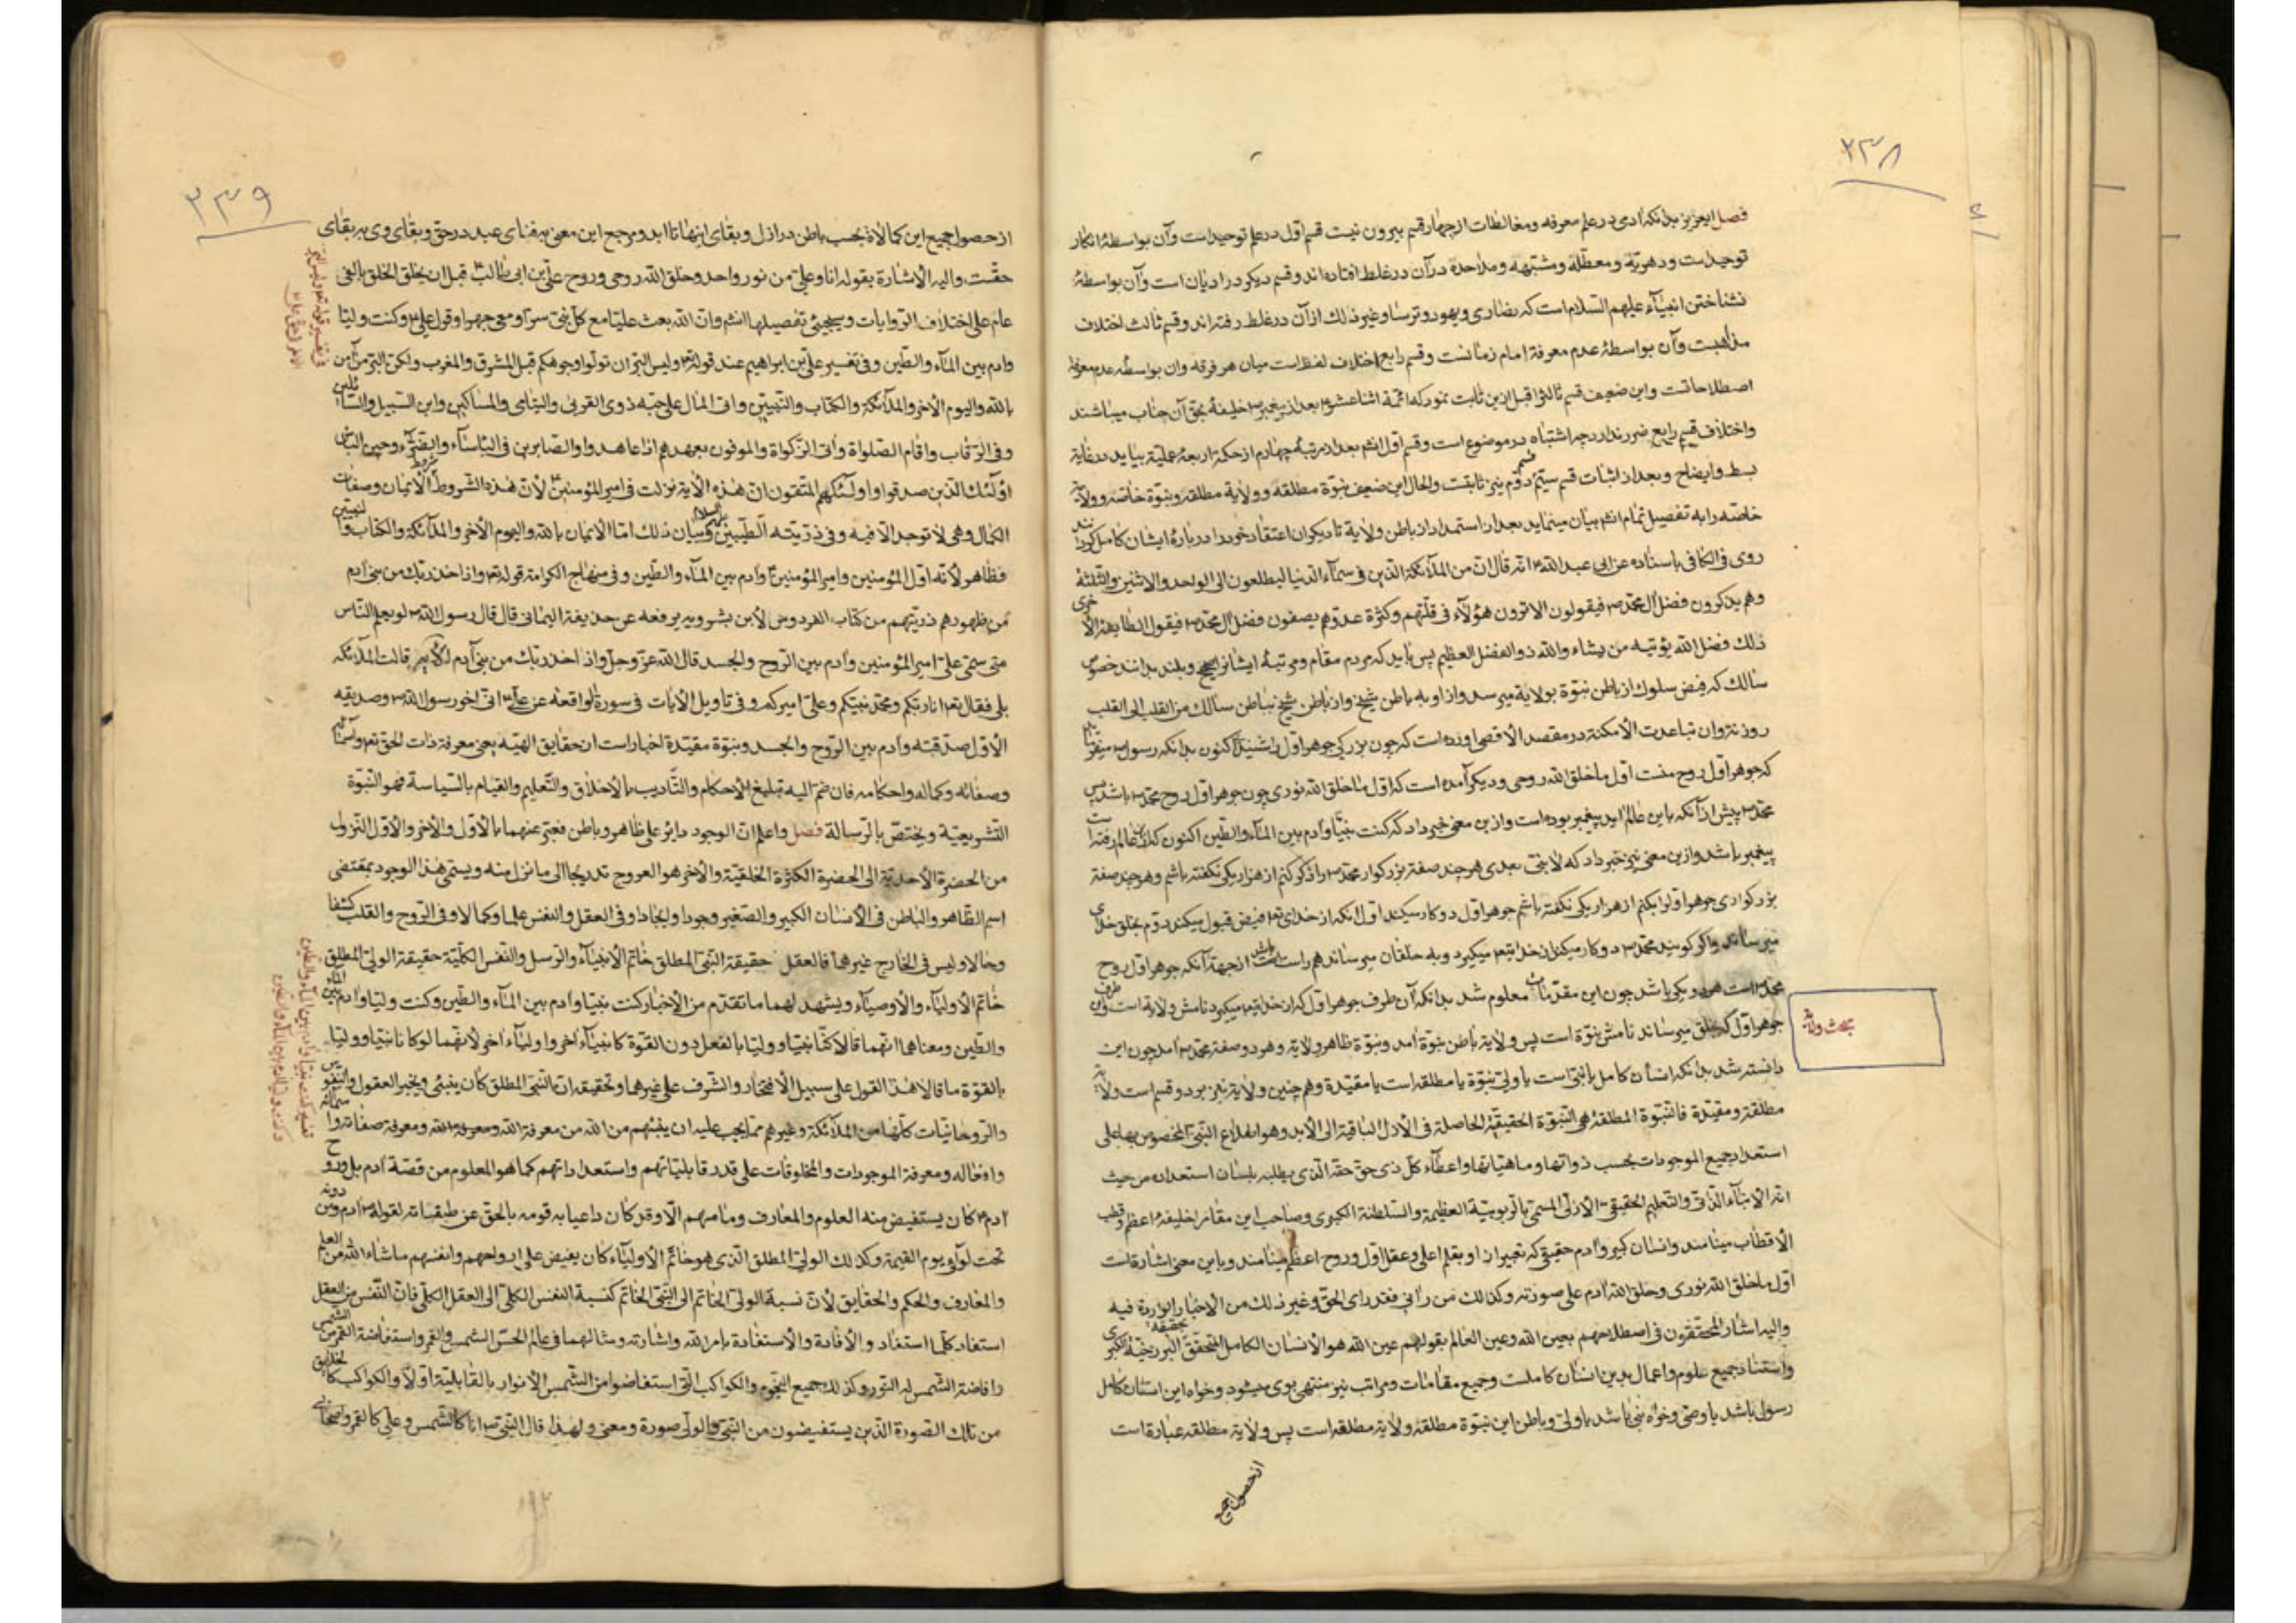 ٢٣٨
فصل ایعزیز بدانکه آدمی در علم معرفه ومغالطات از چهار قسم بیرون نیست قسم اوّل در علم توحیداست وآن بواسطهٔ انکار
توحیداست ودهریّه ومعطّله ومشبّهه وملاحدة درآن در غلط افتاده اند وقسم دیکر در ادیان است وآن بواسطهٔ
نشناختن انبیآء علیهم السّلام است که نصاری ویهود وترسا وغیر ذلک ازآن در غلط رفته اند وقسم ثالث اختلاف
مذاهبست وآن بواسطهٔ عدم معرفة امام زمانست وقسم رابع اختلاف لفظ است میان هر فرقه وان بواسطه عدم معرفة
اصطلاحاتست واین ضعیف قسم ثالث را قبل ازین ثابت نمود که ائمّة اثنا عشر بعد از پیغمبر خلیفهٔ بحق آن جناب میباشند
واختلاف قسم رابع ضرر ندارد چه اشتباه در موضوع است وقسم اوّل انشم بعد از مرتبهٔ چهارم از حکمة اربعهٔ عملیّه بیاید در غایة
بسط وایضاح وبعد از اثبات قسم سیّم قسم دوّم نیز ثابتست والحال این ضعیف نبوّة مطلقه وولایة مطلقه ونبوّة خاصّه وولایة
خاصّه را به تفصیل تمام انشم بیان مینماید بعد از استمداد از باطن ولایة تا دیکران اعتقاد خود را دربارهٔ ایشان کامل کردانند
روی فی الکافی باسناده عن ابی عبد الله انّه قال انّ من الملآئکة الّذین فی سمآء الدّنیا لیطلعون الی الواحد والاثنین والثّلثة
وهم یذکرون فضل آل محمّد فیقولون الا ترون هؤلآء فی قلّتهم وکثرة عدوّهم یصفون فضل آل محمّد فیقول الطّایفة الاخری
ذلک فضل الله یؤتیه من یشاء والله ذو الفضل العظیم پس باید که مردم مقام ومرتبهٔ ایشانرا هیچ وبلند بدانند خصوص
سالک که فیض سلوک از باطن نبوّة بولایة میرسد واز او به باطن شیخ واز باطن شیخ بباطن سالک من القلب الی القلب
روزنة وان تباعدت الأمکنة در مقصد الأقصی اورده است که چون بزرکی جوهر اوّل را شنیدی اکنون بدانکه رسول میفرماید
که جوهر اوّل روح منست اوّل ما خلق الله روحی ودیکر آمده است که اوّل ما خلق الله نوری چون جوهر اوّل روح محمّد باشد پس
محمّد پیش از آنکه باین عالم اید پیغمبر بوده است وازین معنی خبر داد که کنت نبیّا وآدم بین المآء والطّین اکنون که ازین عالم رفته است
پیغمبر باشد وازین معنی نیز خبر داد که لا نبیّ بعدی هر چند صفة بزرکوار محمّد را ذکر کنم از هزار یکی نکفته باشم وهر چند صفة
بزرکواری جوهر اوّل را بکنم از هزار یکی نکفته باشم جوهر اوّل دو کار میکند اوّل انکه از خدای تم فیض قبول میکند دوّم بخلق خدای
میرساند واکر کویند محمّد دو کار میکند از خدا یتم میکیرد وبه خلقان میرساند هم راست باشد ازجهة آنکه جوهر اوّل روح
محمّد است هر دو یکی باشد چون این مقدّمات معلوم شد بدانکه آن طرف جوهر اوّل که از خدا یتم میکیرد نامش ولایة است واین طرف
جوهر اوّل که بخلق میرساند نامش نبوّة است پس ولایة باطن نبوّة آمد ونبوّة ظاهر ولایة وهر دو صفة محمّد امد چون این
دانسته شد بدانکه انسان کامل یا نبیّ است یا ولیّ نبوّة یا مطلقه است یا مقیّدة وهم چنین ولایة نیز بر دو قسم است ولایة
مطلقة ومقیّدة فالنّبوّة المطلقة هی النّبوّة الحقیقیّة الحاصلة فی الأزل الباقیة الی الأبد وهو اطّلاع النّبیّ المخصوص بها علی
استعداد جمیع الموجودات بحسب ذواتها وماهیّاتها واعطآء کلّ ذی حقّ حقّه الّذی یطلبه بلسان استعداده من حیث
انّه الإنبآء الذّاتی والتّعلیم الحقیقی الأزلی المسمّی بالرّبوبیّة العظیمة والسّلطنة الکبری وصاحب این مقام را خلیفهٔ اعظم وقطب
الأقطاب مینامند وانسان کبیر وآدم حقیقی که تعبیر از او بقلم اعلی وعقل اوّل وروح اعظم مینامند وباین معنی اشارتست
اوّل ما خلق الله نوری وخلق الله آدم علی صورته وکذلک من رآنی فقد رای الحقّ وغیر ذلک من الاخبار الواردة فیه
والیه اشار المحقّقون فی اصطلاحهم بعین الله وعین العالم بقولهم عین الله هو الأنسان الکامل المتحقّق بحقیقة البرزخیّة الکبری
واستناد جمیع علوم واعمال بدین انسان کاملست وجمیع مقامات ومراتب نیز منتهی بوی میشود وخواه این انسان کامل
رسول باشد یا وصیّ وخواه نبیّ باشد یا ولیّ وباطن این نبوّة مطلقة ولایة مطلقه است پس ولایة مطلقه عبارتست
از حصول جمیع
مبحث ولایة
٢٣٩
از حصول جمیع این کمالاة بحسب باطن در ازل وبقای اینها تا ابد ومرجع این معنی به فنای عبد در حق وبقای وی به بقای
حقّست والیه الأشارة بقوله انا وعلیّ من نور واحد وخلق الله روحی وروح علیّ بن ابی طالب قبل ان یخلق الخلق بالفی
عام علی اختلاف الرّوایات وسیجیئ تفصیلها انشم وانّ الله بعث علیّا مع کلّ نبیّ سرّا ومعی جهرا وقول علیّ وکنت ولیّا
وآدم بین المآء والطّین وفی تفسیر علیّ بن ابراهیم عند قوله تم ولیس البرّ ان تولّوا وجوهکم قبل المشرق والمغرب ولکنّ البرّ من آمن
بالله والیوم الأخر والملآئکة والکتاب والنّبیّین واتی المال علی حبّه ذوی القربی والیتامی والمساکین وابن السّبیل والسّائلین
وفی الرّقاب واقام الصّلواة واتی الزّکواة والموفون بعهدهم اذا عاهدوا والصّابرین فی البأسآء والضّرّآء وحین البأس
اولئک الّذین صدقوا واولئک هم المتّقون انّ هذه الآیة نزلت فی امیر المؤمنین لأنّ هذه الشّروط شروط الأیمان وصفات
الکمال وهی لا توجد الّا فیه وفی ذرّیّته الطّیّبین علیهم السلام وبیان ذلک امّا الأیمان بالله والیوم الأخر والملآئکة والکتاب والنبیین
فظاهر لأنّه اوّل المؤمنین وامیر المؤمنین وآدم بین المآء والطّین وفی منهاج الکرامة قوله تم واذ اخذ ربّک من بنی آدم
من ظهورهم ذرّیّتهم من کتاب الفردوس لأبن بشرویه یرفعه عن حذیفة الیمانی قال قال رسول الله لو یعلم النّاس
متی سمّی علیّ امیر المؤمنین وآدم بین الرّوح والجسد قال الله عزّ وجلّ واذ اخذ ربّک من بنی آدم الآیه قالت الملآئکه
بلی فقال تم انا ربّکم ومحمّد نبیّکم وعلیّ امیرکم وفی تأویل الأیات فی سورة الواقعه عن علیّ انّی اخو رسول الله وصدیقه
الأوّل صدّقته وآدم بین الرّوح والجسد ونبوّة مقیّدة اخبار است از حقایق الهیّه یعنی معرفة ذات الحق تم واسمائه
وصفاته وکماله واحکامه فان ضمّ الیه تبلیغ الأحکام والتّأدیب بالاخلاق والتّعلیم والقیام بالسّیاسة فهو النّبوّة
التّشریعیّة ویختصّ بالرّسالة فصل واعلم انّ الوجود دایر علی ظاهر وباطن فعبّر عنهما بالأوّل والأخر والأوّل النّزول
من الحضرة الأحدیّة الی الحضرة الکثرة الخلقیّة والأخر هو العروج تدریجا الی ما نزل منه ویسمّی هذا الوجود بمقتضی
اسم الظّاهر والباطن فی الأنسان الکبیر والصّغیر وجودا وایجادا وفی العقل والنفس علما وکمالا وفی الرّوح والقلب کشفا
وحالا ولیس فی الخارج غیرهما فالعقل حقیقة النّبیّ المطلق خاتم الأنبیآء والرّسل والنّفس الکلّیّة حقیقة الولیّ المطلق
خاتم الأولیآء والأوصیآء ویشهد لهما ما تقدّم من الأخبار کنت نبیّا وآدم بین المآء والطّین وکنت ولیّا وآدم بین المآء
والطّین ومعناهما انّهما قالا کنّا نبیّا وولیّا بالفعل دون القوّة کانبیآء اخر واولیآء اخر لأنّهما لو کانا نبیّا وولیّا
بالقوّة ما قالا هذا القول علی سبیل الأفتخار والشّرف علی غیرهما وتحقیقه انّ النّبیّ المطلق کان ینبئ ویخبر العقول والنفوس
والرّوحانیّات کلّها من الملآئکة وغیرهم ممّا یجب علیه ان ینبئهم من الله من معرفة الله ومعرفة صفاته واسمائه
وافعاله ومعرفة الموجودات والمخلوقات علی قدر قابلیّاتهم واستعداداتهم کما هو المعلوم من قصّة آدم بل وروح
آدم کان یستفیض منه العلوم والمعارف وما منهم الّا وقد کان داعیا به قومه بالحقّ عن طبقاته لقوله آدم ومن دونه
تحت لوآئی یوم القیمة وکذلک الولیّ المطلق الّذی هو خاتم الأولیآء کان یفیض علی ارواحهم وانفسهم ما شاء الله من العلم
والمعارف والحکم والحقایق لأنّ نسبة الولیّ الخاتم الی النّبیّ الخاتم کنسبة النفس الکلّیّ الی العقل الکلّی فانّ النّفس من العقل
استفاد کلّما استفاد والأفادة والأستفادة بامر الله واشارته ومثالهما فی عالم الحسّ الشمس والقمر واستفاضة القمر من الشمس
وافاضة الشّمس له النّور وکذلک جمیع النّجوم والکواکب الّتی استفاضوا من الشمس الأنوار بالقابلیّة اوّلا والکواکب کالخلایق
من تلک الصّورة الّذین یستفیضون من النّبیّ والولیّ صورة ومعنی ولهذا قال النّبیّ انا کالشّمس وعلیّ کالقمر واصحابی